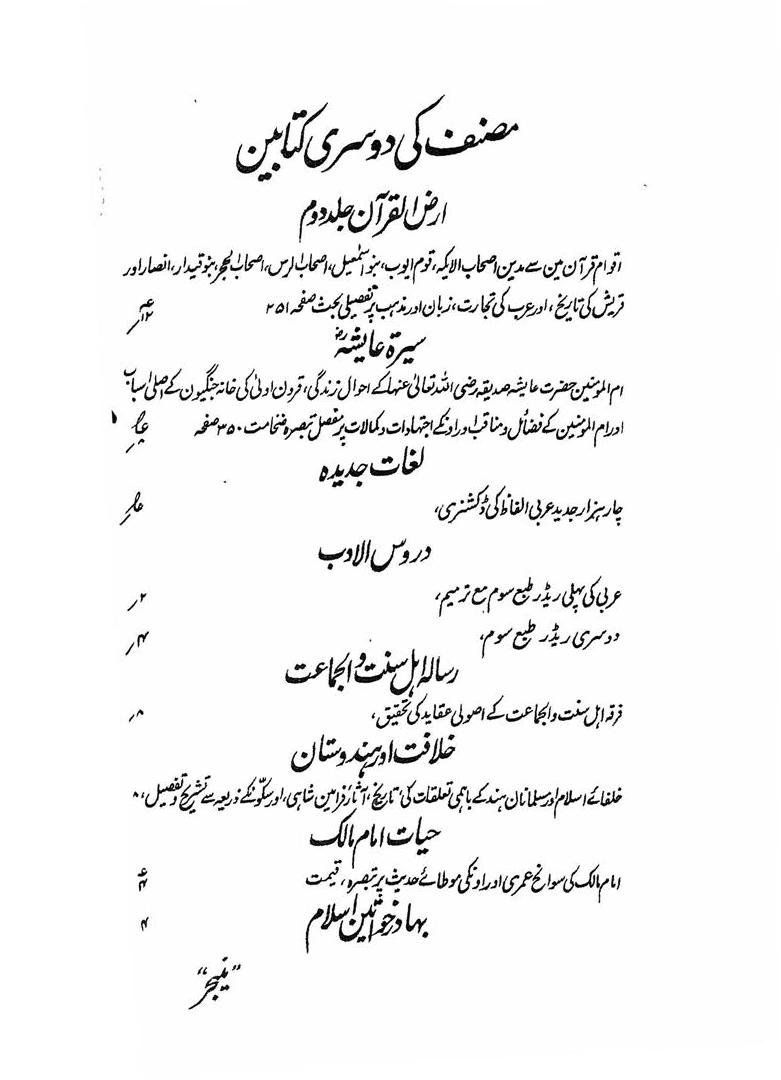 مصنف کی دوسری کتابین
ارض القرآن جلد دوم
اقوام قرآن مین سے مدین اصحاب الایکہ، قوم ایوب، بنو اسمٰعیل، اصحاب الرس، اصحاب الحجر، بنو قیدار، انصار اور
قریش کی تاریخ، اور عرب کی تجارت، زبان اور مذہب پر تفصیلی بحث صفحہ ۲۵۱
سیرۃ عایشہؓ
ام المومنین حضرت عایشہ صدیقہ رضی اللہ تعالیٰ عنہا کے احوال زندگی، قرون اولیٰ کی خانہ جنگیون کے اصلی اسباب
اور ام المومنین کے فضائل و مناقب اور اونکے اجتہادات و کمالات پر مفصل تبصرہ ضخامت ۳۵۰ صفحہ
لغات جدیدہ
چار ہزار جدید عربی الفاظ کی ڈکشنری،
دروس الادب
عربی کی پہلی ریڈر طبع سوم مع ترمیم، ۲؍
دوسری ریڈر طبع سوم، ۴؍
رسالہ اہل سنت والجماعت
فرقہ اہل سنت والجماعت کے اصولی عقاید کی تحقیق، ۸؍
خلافت اور ہندوستان
خلفائے اسلام اور مسلمانان ہند کے باہمی تعلقات کی تاریخ، آثار، فرامین شاہی، اور سکّونکے ذریعہ سے تشریح و تفصیل، ۸
حیات امام مالک
امام مالک کی سوانح عمری اور اونکی موطائے حدیث پر تبصرہ، قیمت
بہادر خواتین اسلام ۴
"منیجر"